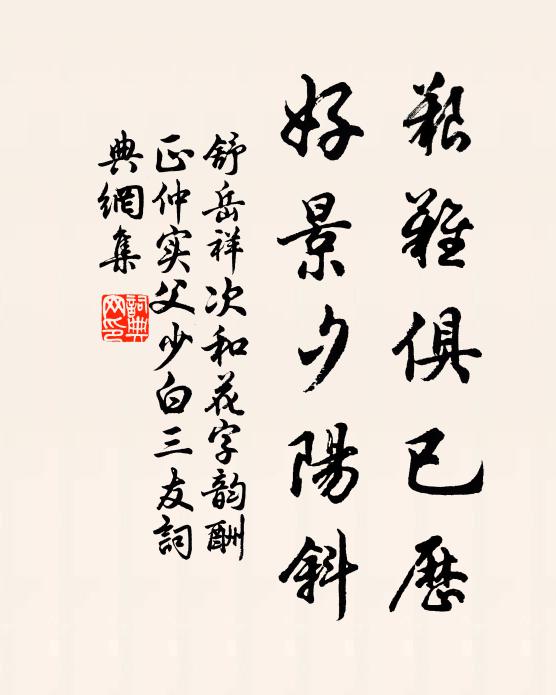 艱難俱已歷
好景夕陽斜
舒岳祥次和花字韵酬
正仲实父少白三友詞
典網集
詞典网印